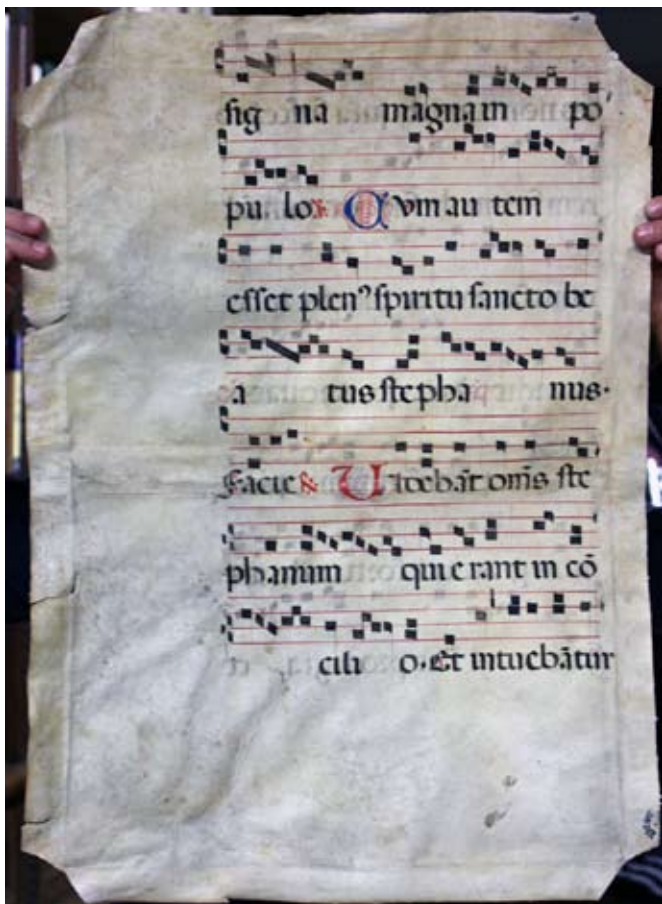 sig na magna in po
pu lo Cum au tem
esset plenꝰ spiritu sancto be
a tus stepha nus.
Facie & Videbāt om̄s ste
phanum qui e rant in cō
cili o. Et intuebātur